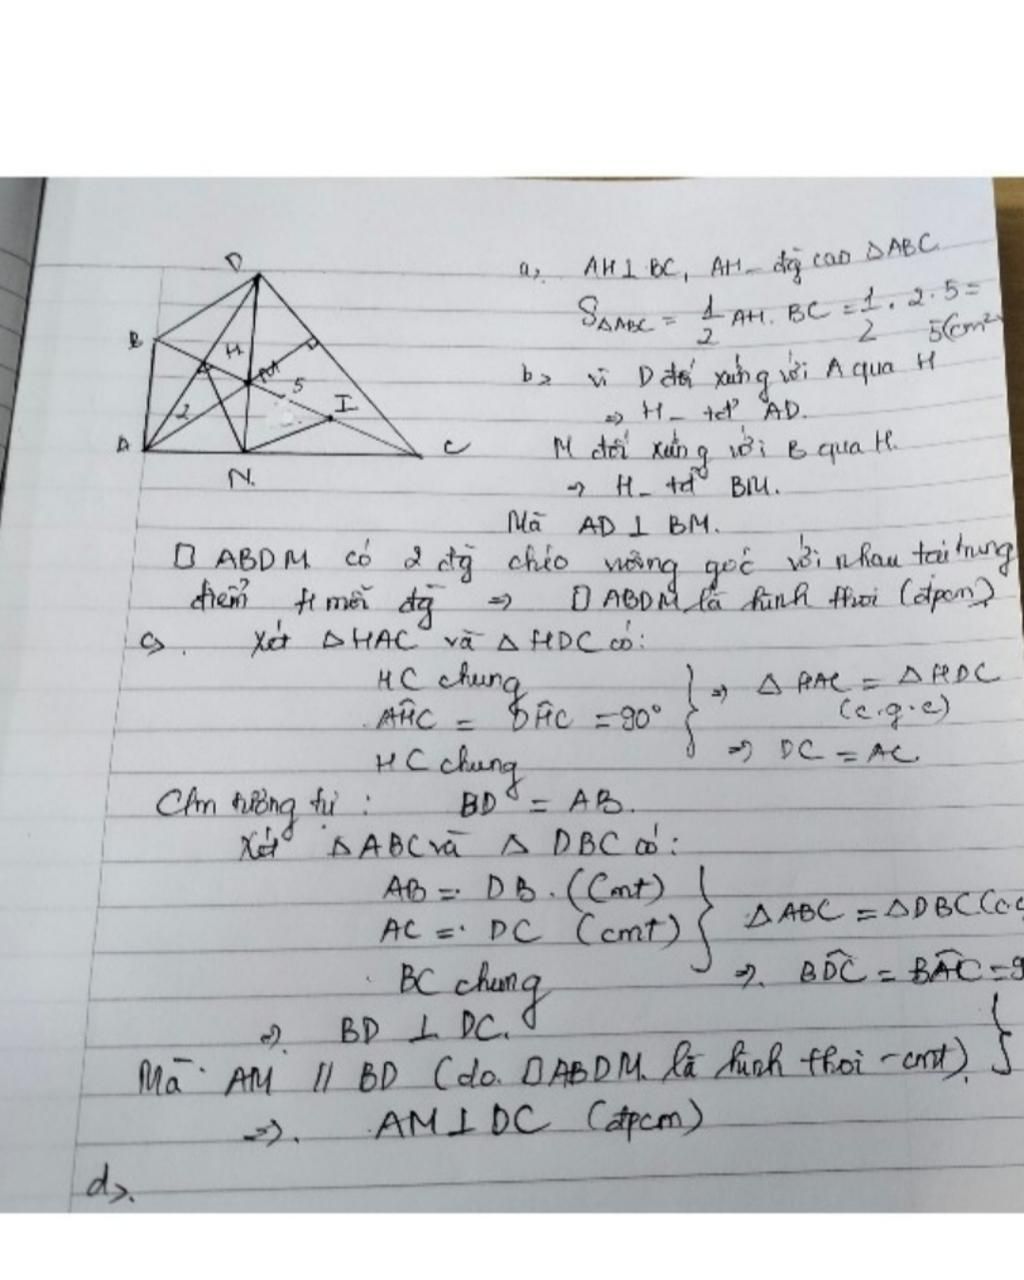 D
B
H
M
5
I
2
A
C
N.
a, AH ⊥ BC, AH - đg̃ cao ΔABC
S ΔABC = 1/2 AH. BC = 1/2 . 2 . 5 =
5(cm²
b, vì D đối xứng với A qua H
⇒ H - tđ AD.
M đối xứng với B qua H.
⇒ H - tđ BM.
Mã AD ⊥ BM.
□ ABDM có 2 đg̃ chéo vuông góc với nhau tại trung
điểm H mỗi đg̃ ⇒ □ ABDM là hình thoi (đpcm)
c, Xét ΔHAC và ΔHDC có:
HC chung
AĤC = DĤC = 90°
HC chung
} ⇒ Δ HAC = ΔHDC
(c.g.c)
⇒ DC = AC
Cm tương tự : BD = AB.
Xét ΔABC và Δ DBC có:
AB = DB. (Cmt)
AC = DC (cmt)
BC chung
} ΔABC = ΔDBC (c.c
⇒. BD̂C = BÂC = 9
⇒. BD ⊥ DC.
Mã AM // BD (do □ABDM là hình thoi - cmt) }
⇒. AM ⊥ DC (đpcm)
d,